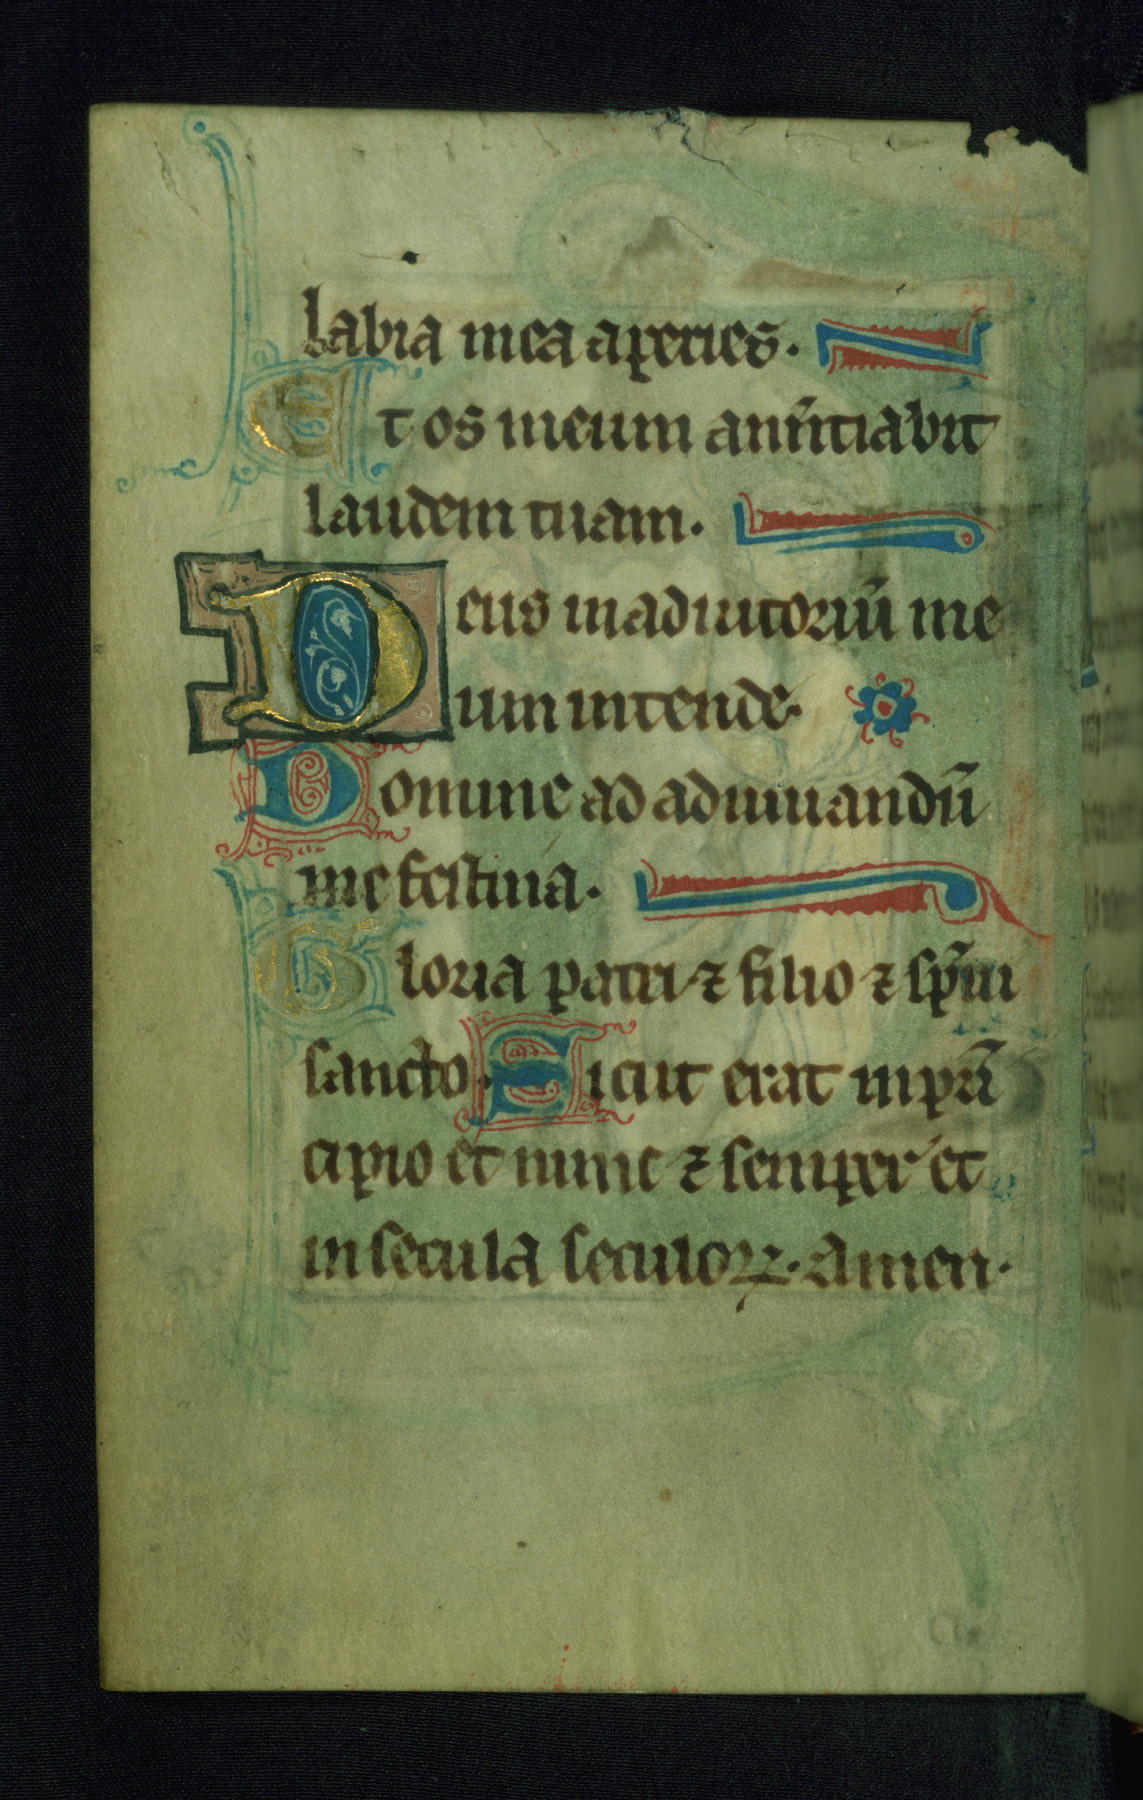 labia mea aperies.
Et os meum anūtiabit
laudem tuam.
Deus in adiutoriū me
um intende.
Domine ad adiuuandū
me festina.
Gloria patri ⁊ filio ⁊ sp̄ui
sancto. Sicut erat in prī
cipio et nunc ⁊ semper et
in secula seculoꝝ. amen.